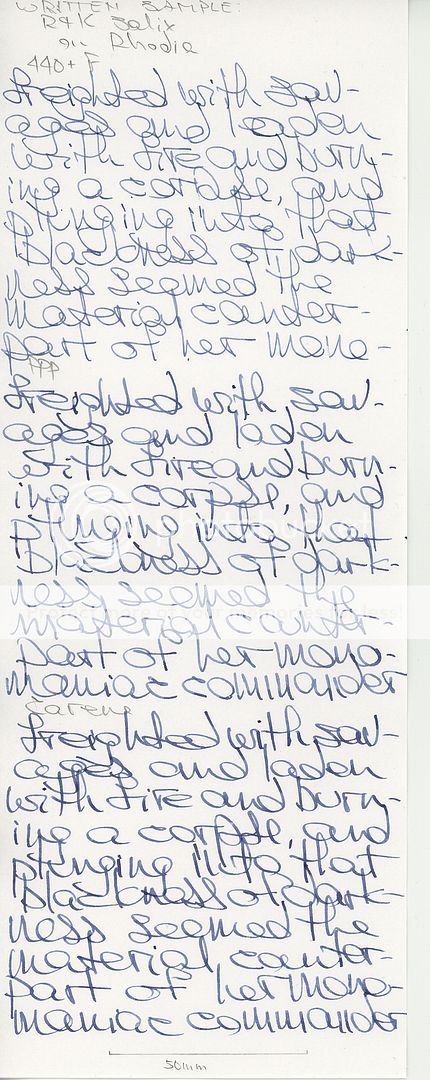 WRITTEN SAMPLE:
R&K Salix
on Rhodia
440+ F
freighted with sav-
ages and laden
with fire and burn-
ing a corpse, and
plunging into that
blackness of dark-
ness seemed the
material counter-
part of her mono-
PPP
freighted with sav-
ages and laden
with fire and burn-
ing a corpse, and
plunging into that
blackness of dark-
ness seemed the
material counter-
part of her mono-
maniac commander
Carene
freighted with sav-
ages and laden
with fire and burn-
ing a corpse, and
plunging into that
blackness of dark-
ness seemed the
material counter-
part of her mono-
maniac commander
50mm